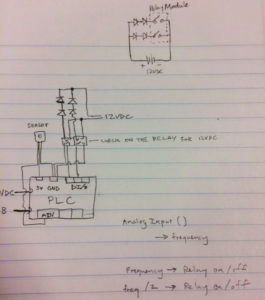 Relay Module
+ -
12VDC
12VDC
SENSOR
CHECK ON THE RELAY FOR 12VDC
5V GND
D2/3
VDC
PLC
AIN
Analog Input ( )
→ frequency
Frequency → Relay on/off
freq/2 → Relay on/off